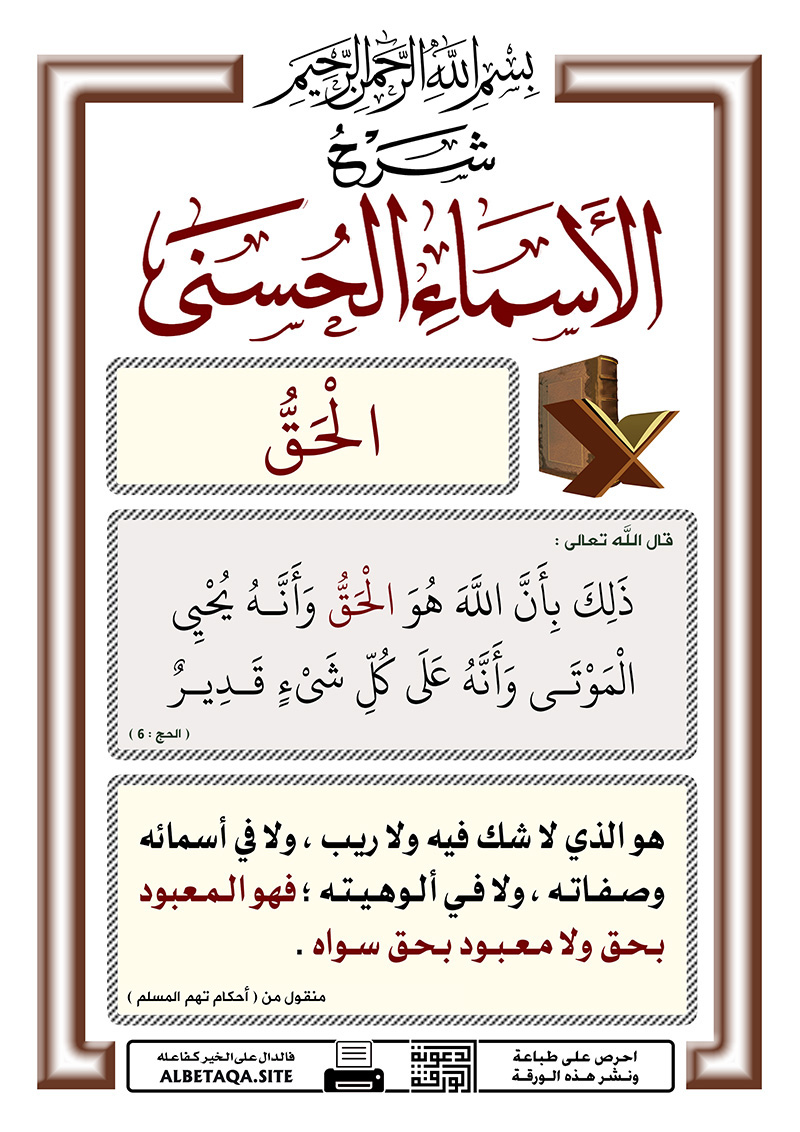 بِسْمِ اللَّهِ الرَّحْمَنِ الرَّحِيمِ
شَرْحُ
الأَسْمَاءِ الحُسْنَى
الْحَقُّ
قال اللَّه تعالى :
ذَلِكَ بِأَنَّ اللَّهَ هُوَ الْحَقُّ وَأَنَّهُ يُحْيِي
الْمَوْتَى وَأَنَّهُ عَلَى كُلِّ شَيْءٍ قَدِيرٌ
( الحج : 6 )
هو الذي لا شك فيه ولا ريب ، ولا في أسمائه
وصفاته ، ولا في ألوهيته ؛ فهو المعبود
بحق ولا معبود بحق سواه .
منقول من ( أحكام تهم المسلم )
احرص على طباعة
ونشر هذه الورقة
الورقة
الدعوية
فالدال على الخير كفاعله
ALBETAQA.SITE